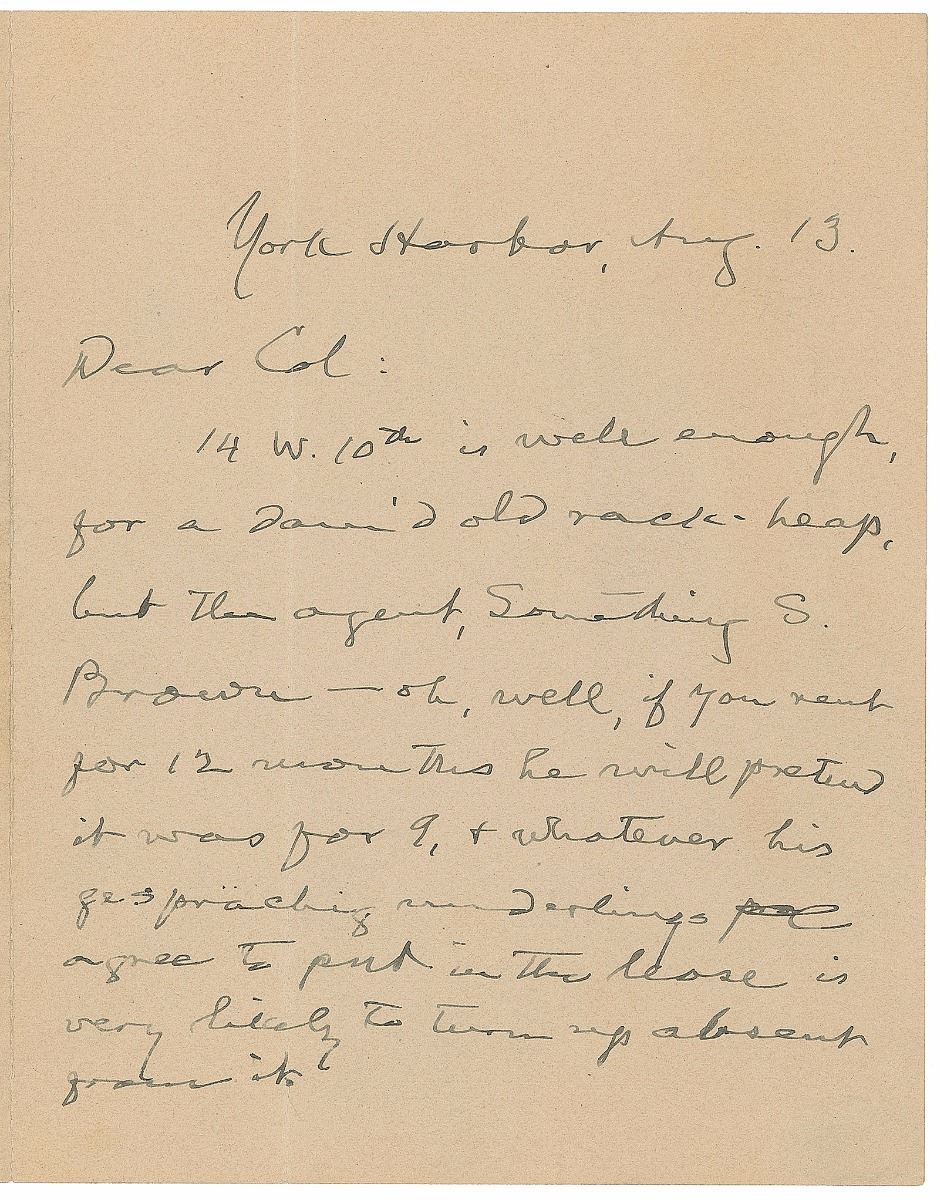 York Harbor, Aug. 13.
Dear Col:
14 W. 10th is well enough,
for a dam'd old rack-heap,
but the agent, Something S.
Brown — oh, well, if you rent
for 12 months he will pretend
it was for 9, & whatever his
gesprächig underlings
agree to put in the lease is
very likely to turn up absent
from it.